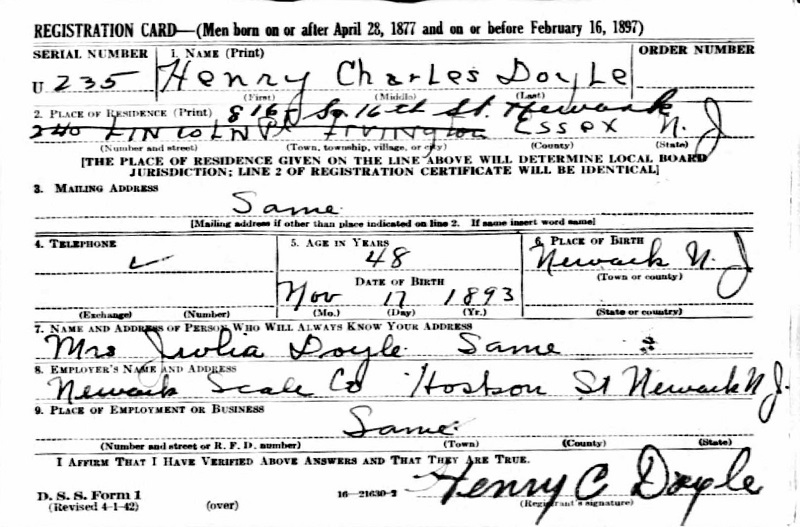 REGISTRATION CARD—(Men born on or after April 28, 1877 and on or before February 16, 1897)
SERIAL NUMBER 1. NAME (Print) ORDER NUMBER
U 235 Henry Charles Doyle
(First) (Middle) (Last)
2. PLACE OF RESIDENCE (Print) 816 So. 16th St. Newark
240 LINCOLN PL IRVINGTON ESSEX N. J
(Number and street) (Town, township, village, or city) (County) (State)
[THE PLACE OF RESIDENCE GIVEN ON THE LINE ABOVE WILL DETERMINE LOCAL BOARD
JURISDICTION; LINE 2 OF REGISTRATION CERTIFICATE WILL BE IDENTICAL]
3. MAILING ADDRESS
Same
[Mailing address if other than place indicated on line 2. If same insert word same]
4. TELEPHONE 5. AGE IN YEARS 6. PLACE OF BIRTH
48 Newark N. J
(Town or county)
DATE OF BIRTH
Nov 17 1893
(Exchange) (Number) (Mo.) (Day) (Yr.) (State or country)
7. NAME AND ADDRESS OF PERSON WHO WILL ALWAYS KNOW YOUR ADDRESS
Mrs Doyle Same
8. EMPLOYER'S NAME AND ADDRESS
Newark Scale Co St Newark N J.
9. PLACE OF EMPLOYMENT OR BUSINESS
Same
(Number and street or R. F. D. number) (Town) (County) (State)
I AFFIRM THAT I HAVE VERIFIED ABOVE ANSWERS AND THAT THEY ARE TRUE.
D. S. S. Form 1 16—21630-2 Henry C Doyle
(Revised 4-1-42) (over) (Registrant's signature)